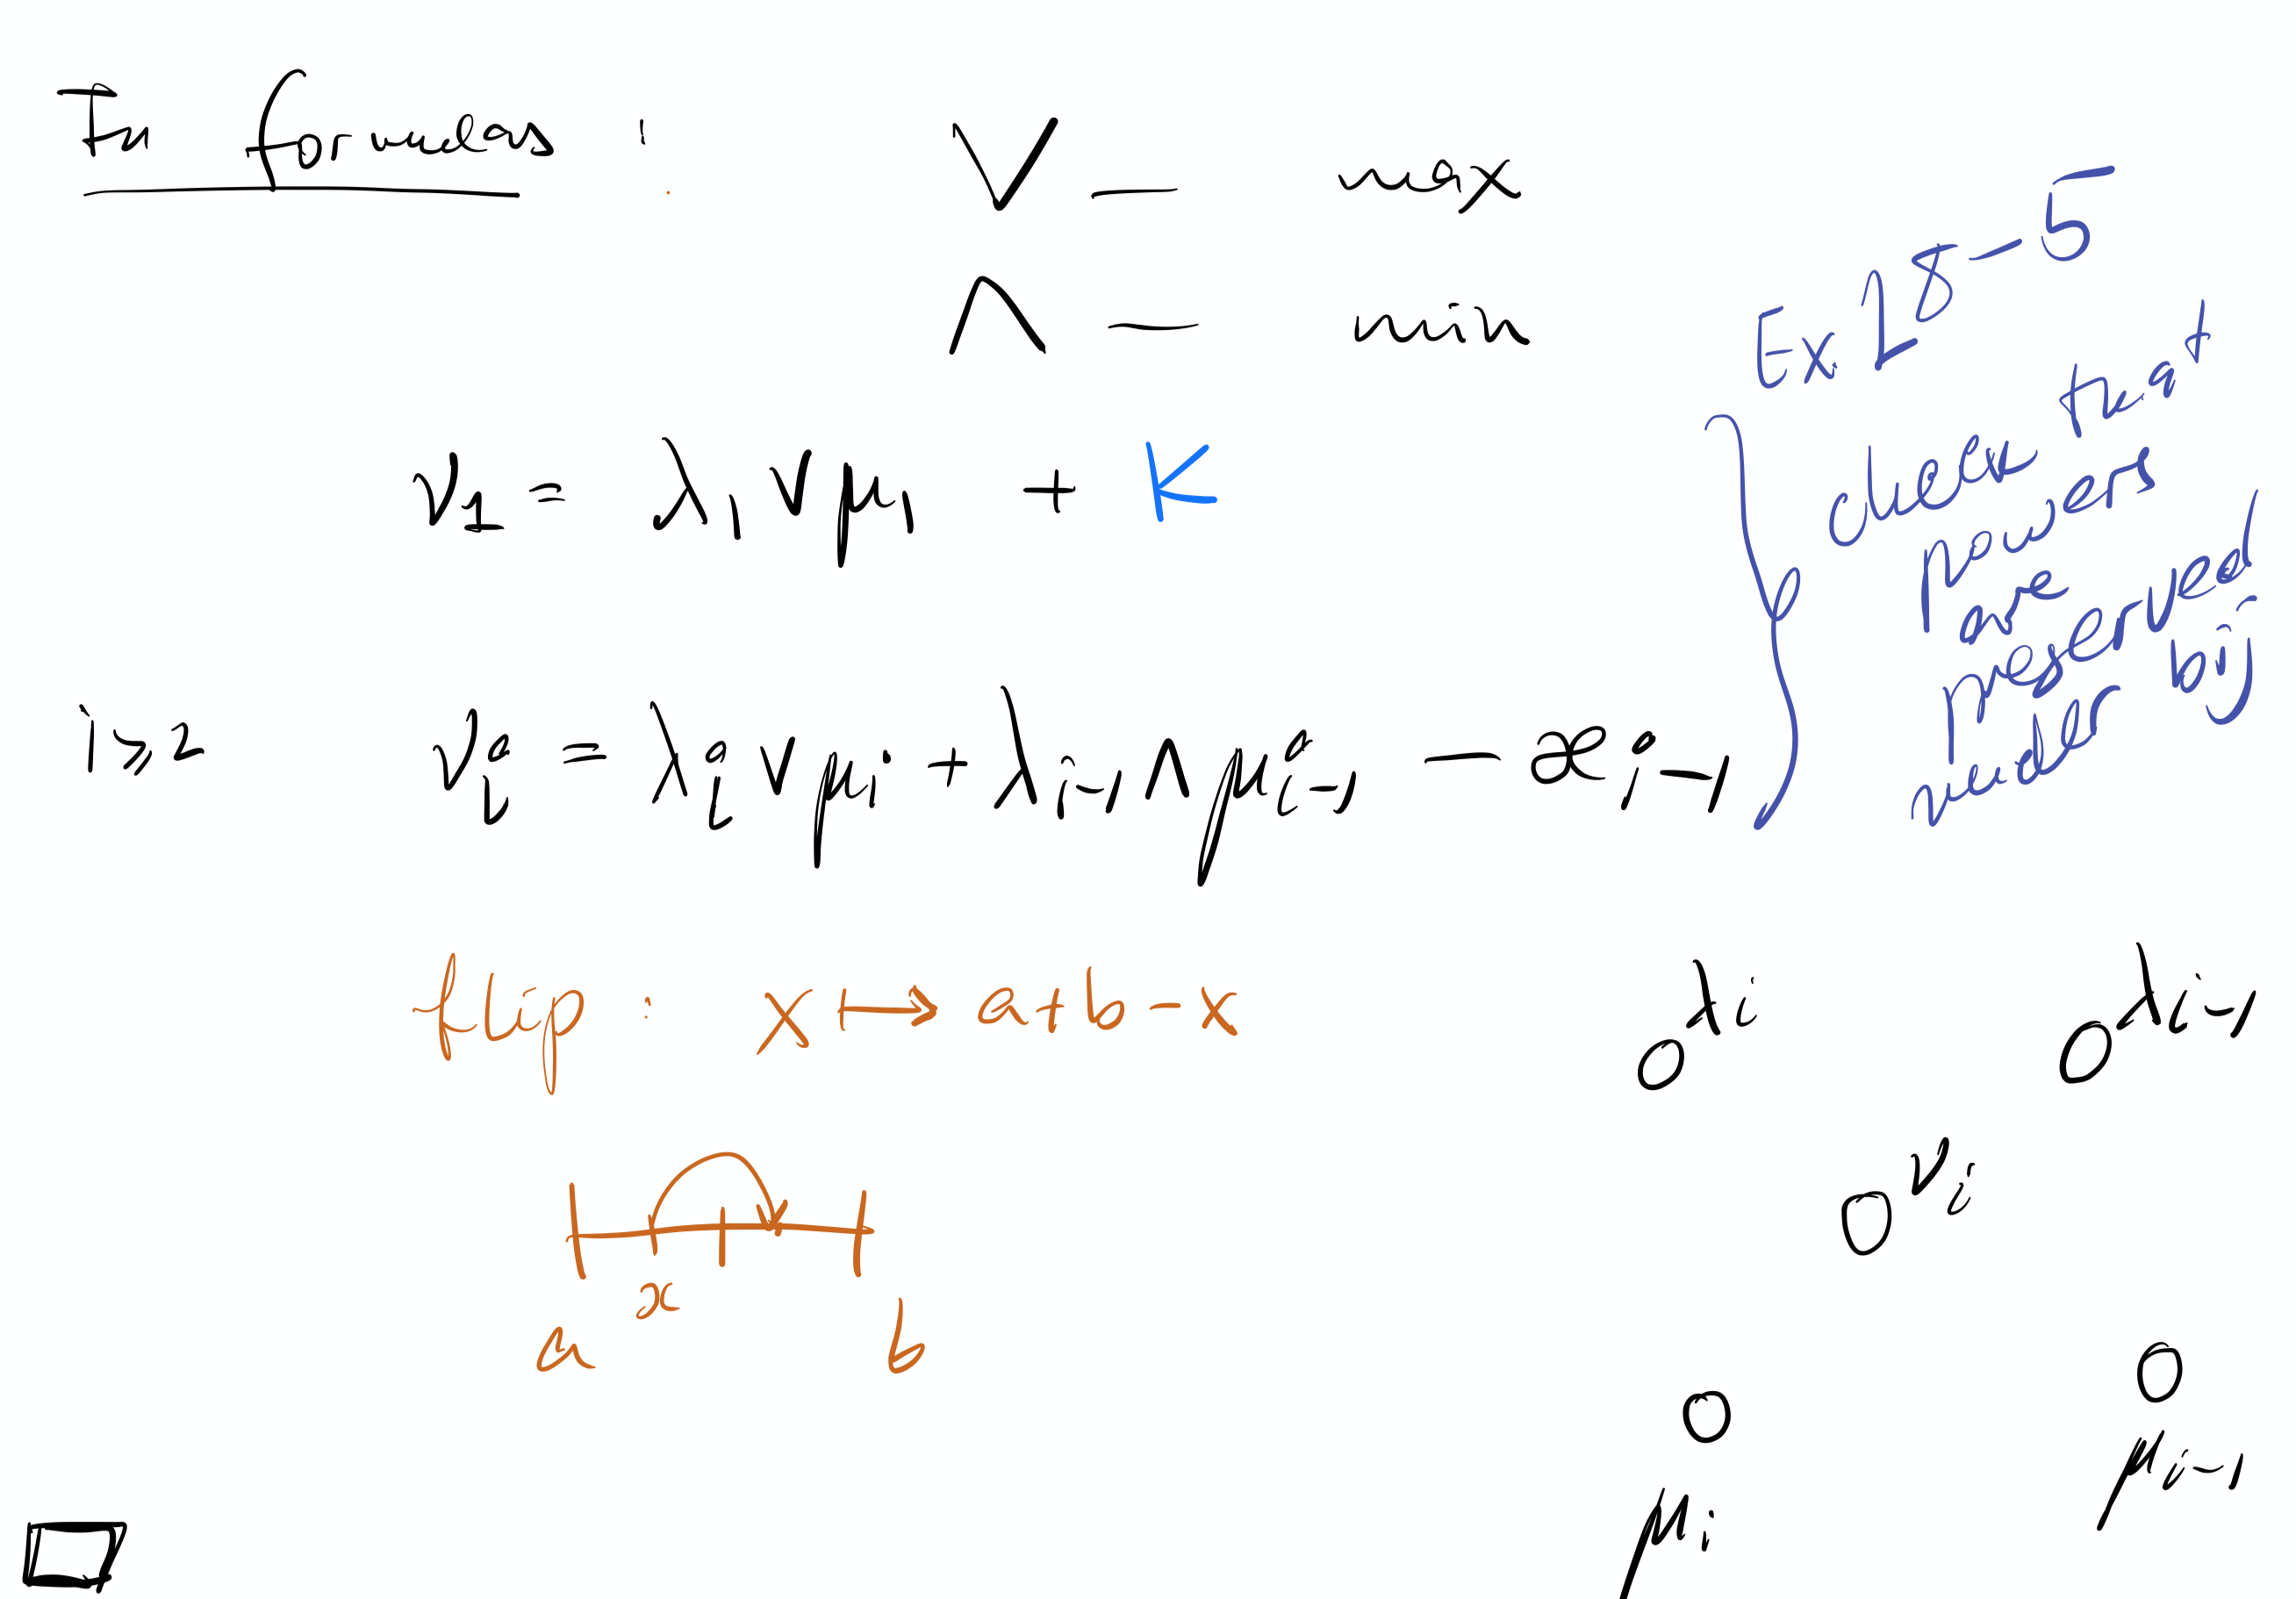 In formulas :
V — max
Λ — min
ν₁ = λ₁ ∨ μ₁ + K
i ⩾ 2
νᵢ = λᵢ ∨ μᵢ + λᵢ₋₁ ∧ μᵢ₋₁ − æᵢ₋₁
Ex. 28-5
Check that
powers
are
preserved
under bij
flip : x ↦ a+b-x
a x b
λᵢ λᵢ₋₁
νᵢ
μᵢ μᵢ₋₁